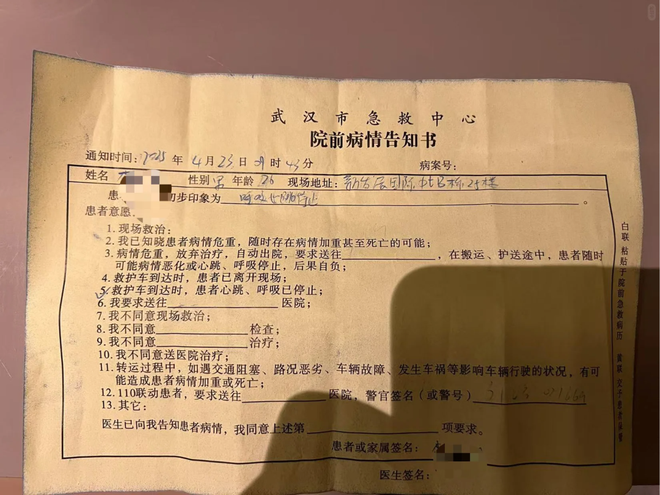 武汉市急救中心
院前病情告知书
通知时间：2025年4月23日 时43分 病案号：
姓名 性别 男 年龄 26 现场地址： 国际 25楼
患 初步印象为 呼吸心跳停止。
患者意愿：
1. 现场救治；
2. 我已知晓患者病情危重，随时存在病情加重甚至死亡的可能；
3. 病情危重，放弃治疗，自动出院，要求送往 ，在搬运、护送途中，患者随时
可能病情恶化或心跳、呼吸停止，后果自负；
4. 救护车到达时，患者已离开现场；
5. 救护车到达时，患者心跳、呼吸已停止；
6. 我要求送往 医院；
7. 我不同意现场救治；
8. 我不同意 检查；
9. 我不同意 治疗；
10. 我不同意送医院治疗；
11. 转运过程中，如遇交通阻塞、路况恶劣、车辆故障、发生车祸等影响车辆行驶的状况，有可
能造成患者病情加重或死亡；
12. 110联动患者，要求送往 医院，警官签名（或警号）
13. 其它：
医生已向我告知患者病情，我同意上述第 项要求。
患者或家属签名：
医生签名：
白联 粘贴于院前急救病历